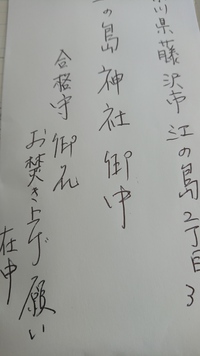 川県藤沢市江の島2丁目3
の島神社御中
合格守 御札
お焚き上げ願い
在中